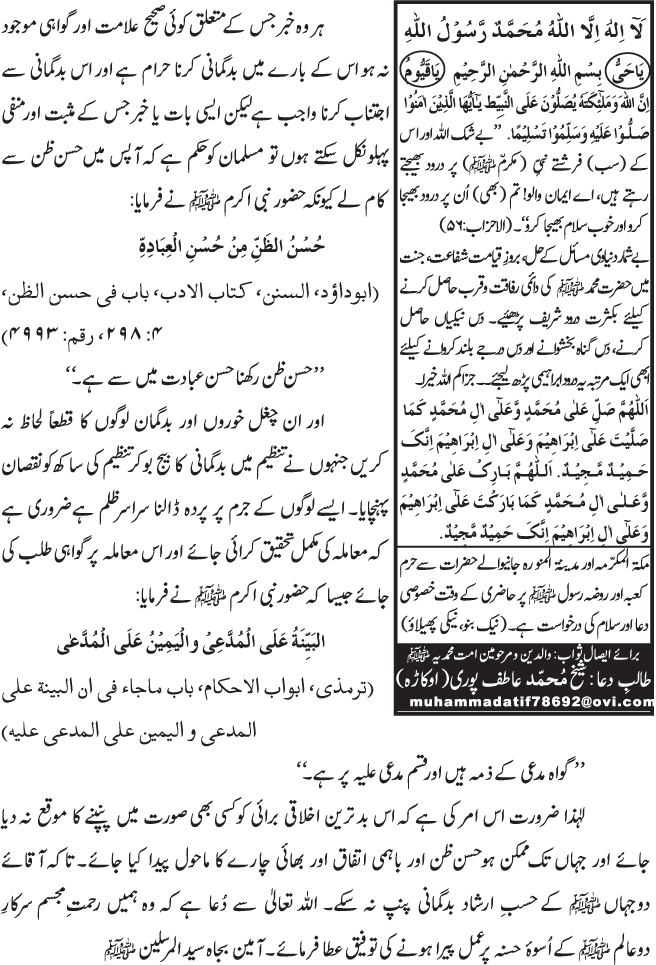 ہر وہ خبر جس کے متعلق کوئی صحیح علامت اور گواہی موجود
نہ ہو اس کے بارے میں بدگمانی کرنا حرام ہے اور اس بدگمانی سے
اجتناب کرنا واجب ہے لیکن ایسی بات یا خبر جس کے مثبت اور منفی
پہلو نکل سکتے ہوں تو مسلمان کو حکم ہے کہ آپس میں حسن ظن سے
کام لے کیونکہ حضور نبی اکرم ﷺ نے فرمایا:
حُسْنُ الظَّنِّ مِنْ حُسْنِ الْعِبَادِةِ
(ابوداؤد، السنن، کتاب الادب، باب فی حسن الظن،
۴: ۲۹۸، رقم: ۴۹۹۳)
’’حسن ظن رکھنا حسن عبادت میں سے ہے۔‘‘
اور ان چغل خوروں اور بدگمان لوگوں کا قطعاً لحاظ نہ
کریں جنہوں نے تنظیم میں بدگمانی کا بیج بو کر تنظیم کی ساکھ کو نقصان
پہنچایا۔ ایسے لوگوں کے جرم پر پردہ ڈالنا سراسر ظلم ہے ضروری ہے
کہ معاملہ کی مکمل تحقیق کرائی جائے اور اس معاملہ پر گواہی طلب کی
جائے جیسا کہ حضور نبی اکرم ﷺ نے فرمایا:
البَيِّنَةُ عَلَى الْمُدَّعِىْ والْيَمِيْنُ عَلَى الْمُدَّعىٰ
(ترمذی، ابواب الاحکام، باب ماجاء فی ان البینة علی
المدعی و الیمین علی المدعی علیه)
’’گواہ مدعی کے ذمہ ہیں اور قسم مدعی علیہ پر ہے۔‘‘
لہٰذا ضرورت اس امر کی ہے کہ اس بد ترین اخلاقی برائی کو کسی بھی صورت میں پنپنے کا موقع نہ دیا
جائے اور جہاں تک ممکن ہو حسن ظن اور باہمی اتفاق اور بھائی چارے کا ماحول پیدا کیا جائے۔ تاکہ آقائے
دو جہاں ﷺ کے حسبِ ارشاد بدگمانی پنپ نہ سکے۔ اللہ تعالیٰ سے دُعا ہے کہ وہ ہمیں رحمتِ مجسم سرکارِ
دو عالم ﷺ کے اُسوۂ حسنہ پر عمل پیرا ہونے کی توفیق عطا فرمائے۔ آمین بجاہ سید المرسلین ﷺ
لَآ اِلٰهَ اِلَّا اللّٰهُ مُحَمَّدٌ رَّسُوْلُ اللّٰهِ
يَاحَيُّ بِسْمِ اللّٰهِ الرَّحْمٰنِ الرَّحِيْمِ يَاقَيُّوْمُ
اِنَّ اللّٰهَ وَمَلٰٓئِكَتَهٗ يُصَلُّوْنَ عَلَى النَّبِيِّط يٰٓاَيُّهَا الَّذِيْنَ اٰمَنُوْا
صَلُّوْا عَلَيْهِ وَسَلِّمُوْا تَسْلِيْمًا۔ ’’بے شک اللہ اور اس
کے (سب) فرشتے نبیِ (مکرم ﷺ) پر درود بھیجتے
رہتے ہیں، اے ایمان والو! تم (بھی) اُن پر درود بھیجا
کرو اور خوب سلام بھیجا کرو‘‘۔ (الاحزاب: ۵۶)
بے شمار دنیاوی مسائل کے حل، بروزِ قیامت شفاعت، جنت
میں حضرت محمد ﷺ کی دائمی رفاقت و قرب حاصل کرنے
کیلئے بکثرت درود شریف پڑھیئے۔ دس نیکیاں حاصل
کرنے، دس گناہ بخشوانے اور دس درجے بلند کروانے کیلئے
ابھی ایک مرتبہ یہ درود ابراہیمی پڑھ لیجئے۔۔ جزاکم اللہ خیرا۔
اَللّٰهُمَّ صَلِّ عَلٰى مُحَمَّدٍ وَّعَلٰٓى اٰلِ مُحَمَّدٍ كَمَا
صَلَّيْتَ عَلٰٓى اِبْرَاهِيْمَ وَعَلٰٓى اٰلِ اِبْرَاهِيْمَ اِنَّكَ
حَمِيْدٌ مَّجِيْدٌ۔ اَللّٰهُمَّ بَارِكْ عَلٰى مُحَمَّدٍ
وَّعَلٰٓى اٰلِ مُحَمَّدٍ كَمَا بَارَكْتَ عَلٰٓى اِبْرَاهِيْمَ
وَعَلٰٓى اٰلِ اِبْرَاهِيْمَ اِنَّكَ حَمِيْدٌ مَّجِيْدٌ۔
مکۃ المکرّمہ اور مدینۃ المنورہ جانیوالے حضرات سے حرم
کعبہ اور روضہ رسول ﷺ پر حاضری کے وقت خصوصی
دعا اور سلام کی درخواست ہے۔ (نیک بنو، نیکی پھیلاؤ)
برائے ایصال ثواب: والدین و مرحومین امت محمدیہ ﷺ
طالبِ دعا: شیخ مُحمّد عاطف پوری (اوکاڑہ)
muhammadatif78692@ovi.com